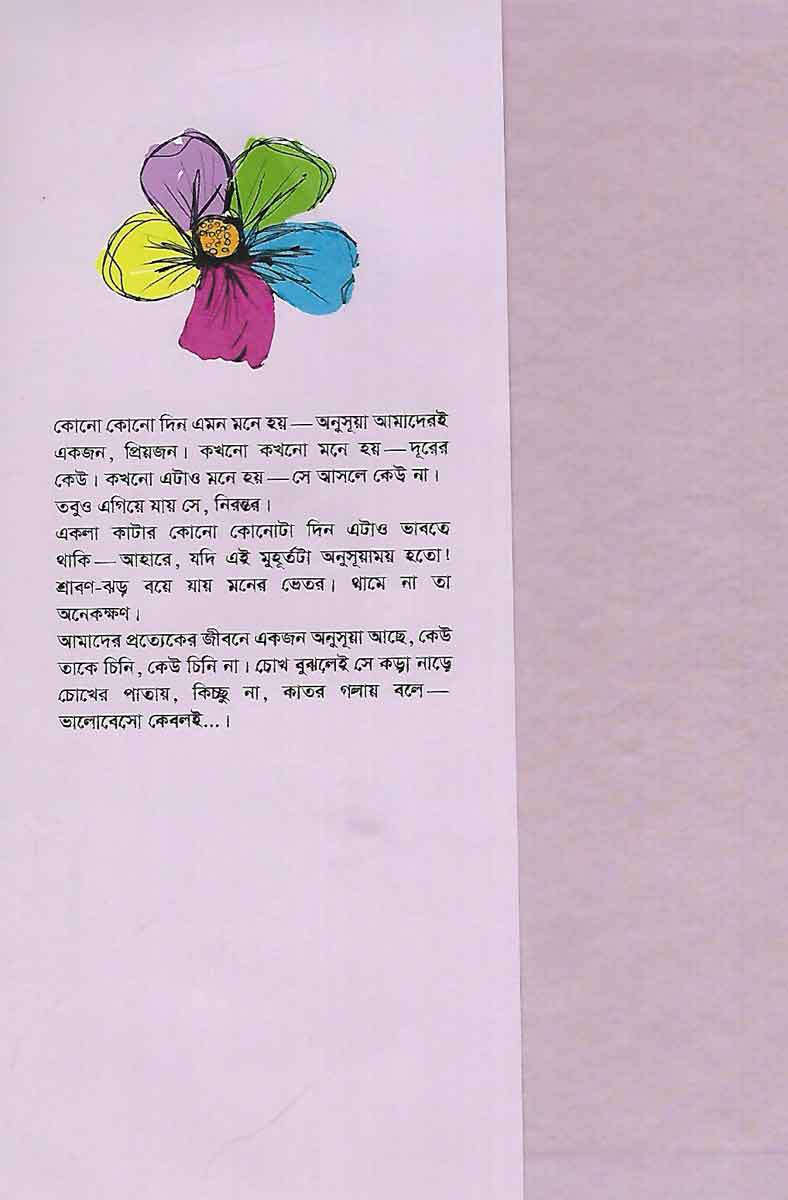 কোনো কোনো দিন এমন মনে হয় — অনুসূয়া আমাদেরই
একজন, প্রিয়জন। কখনো কখনো মনে হয় — দূরের
কেউ। কখনো এটাও মনে হয় — সে আসলে কেউ না।
তবুও এগিয়ে যায় সে, নিরন্তর।
একলা কাটার কোনো কোনোটা দিন এটাও ভাবতে
থাকি — আহারে, যদি এই মুহূর্তটা অনুসূয়াময় হতো!
শ্রাবণ-ঝড় বয়ে যায় মনের ভেতর। থামে না তা
অনেকক্ষণ।
আমাদের প্রত্যেকের জীবনে একজন অনুসূয়া আছে, কেউ
তাকে চিনি, কেউ চিনি না। চোখ বুঝলেই সে কড়া নাড়ে
চোখের পাতায়, কিচ্ছু না, কাতর গলায় বলে —
ভালোবেসো কেবলই...।